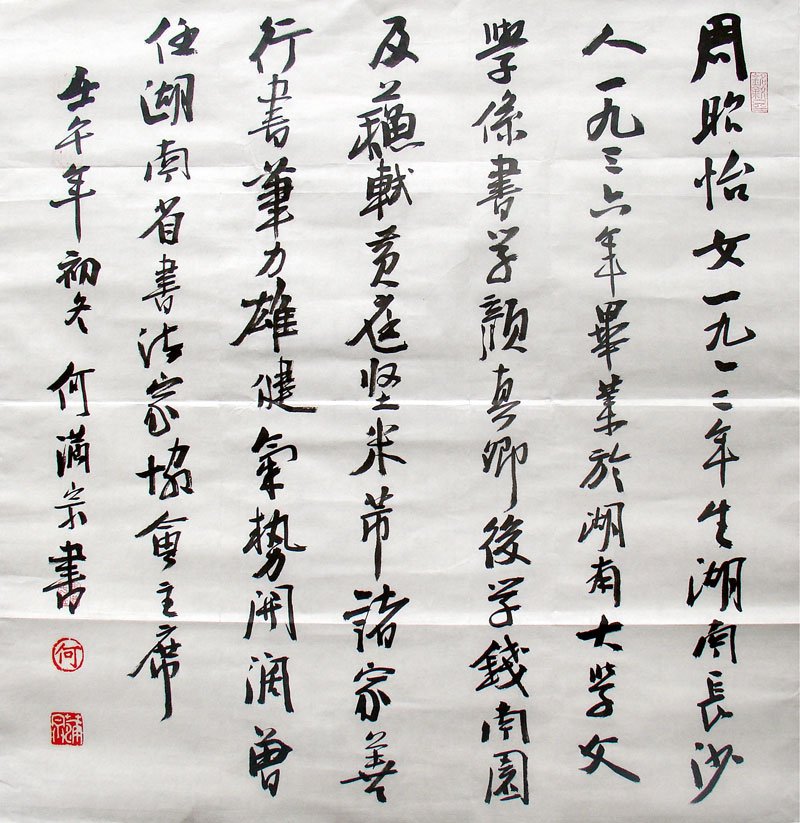 周昭怡女一九一二年生湖南長沙
人一九三六年畢業於湖南大學文
學係書学顔真卿後学錢南園
及蘇軾黄庭坚米芾諸家善
行書筆力雄健氣勢開濶曾
任湖南省書法家協會主席
壬午年初冬何满宗書
何